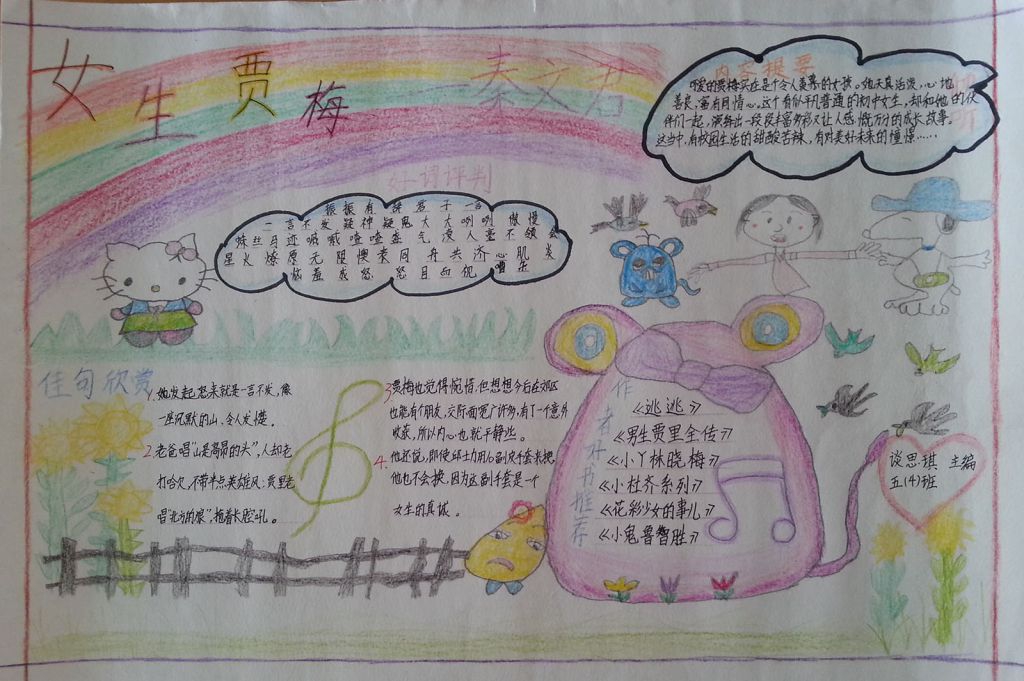 女生贾梅
秦文君
内容提要
可爱的贾梅实在是个令人羡慕的女孩。她天真活泼,心地
善良,富有同情心。这个看似平凡普通的初中女生,却和她的伙
伴们一起,演绎出一段段丰富多彩又让人感慨万分的成长故事。
这当中,有校园生活的甜酸苦辣,有对美好未来的憧憬……
好词评判
振振有辞 君子一言
一言不发 疑神疑鬼 大大咧咧 傲慢
蛛丝马迹 喊喊喳喳 盛气凌人 毫不领会
星火燎原 无限 表 同舟共济 心肌炎
害羞 感 怒目
佳句欣赏
1、她发起怒来就是一言不发,像
一座沉默的山,令人发怵。
2、老爸唱“山是高昂的头”,人却老
打哈欠,不带半点英雄风:贾里老
唱“北方的狼”,拖着长腔吼。
3、贾梅也觉得惋惜,但想想今后在郊区
也能有个朋友,交际面宽广许多,有了一个意外
收获,所以内心也就平静些。
4、他还说,即使邱士力用心副皮手套来换,
他也不会换,因为这副手套是一个
女生的真诚。
作者好书推荐
《逃逃》
《男生贾里全传》
《小丫林晓梅》
《小杜齐系列》
《花彩少女的事儿》
《小鬼鲁智胜》
谈思琪 主编
五(4)班